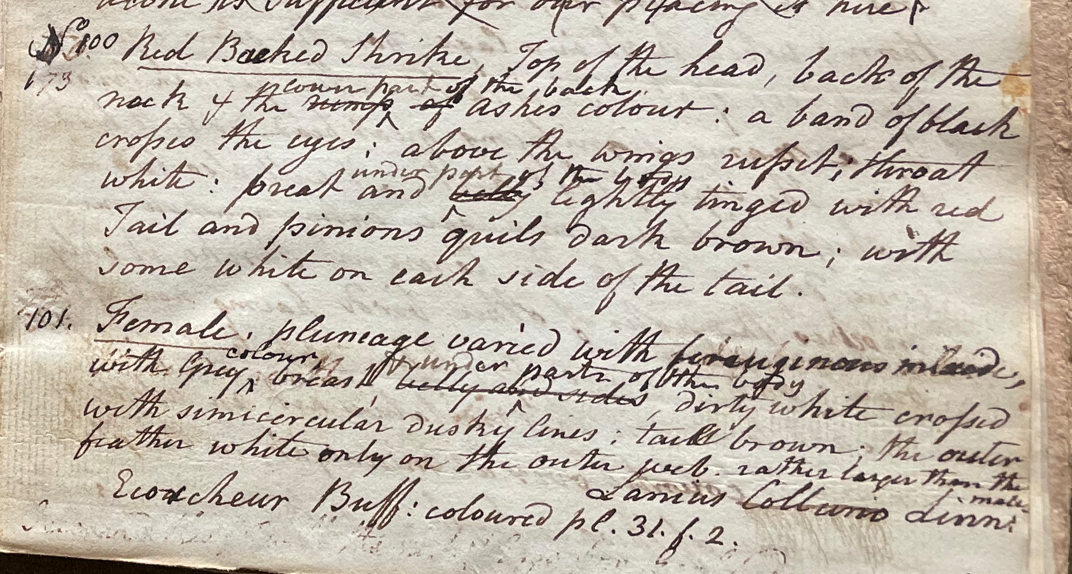 alone is sufficient for our placing it here.
No. 100 Red Backed Shrike, Top of the head, back of the
173
lower part of the back
neck & the rump of ashes colour: a band of black
crosses the eyes; above the wings russet; throat
under part of the body
white: breast and belly lightly tinged with red
Tail and pinions quils dark brown; with
some white on each side of the tail.
101. Female. plumeage varied with feruginous mixed,
colour & under parts of the body
with Grey breast belly and sides, dirty white crossed
with simicircular dusky lines; tail brown; the outer
feather white only on the outer web. rather larger than the
male
Lanius Collurio Linn:
Ecorcheur Buff: coloured pl. 31. f. 2.